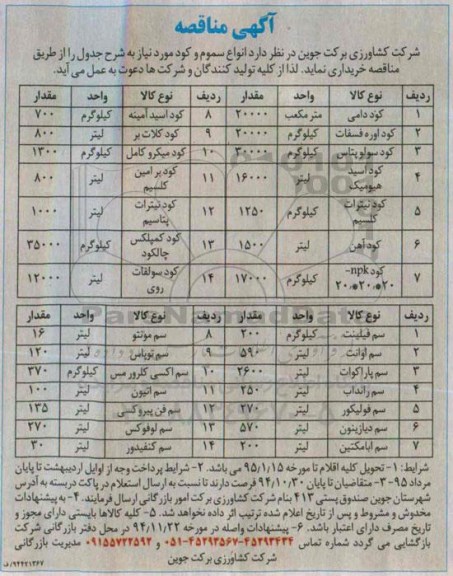 آگهی مناقصه
شرکت کشاورزی برکت جوین در نظر دارد انواع سموم و کود مورد نیاز به شرح جدول را از طریق
مناقصه خریداری نماید. لذا از کلیه تولید کنندگان و شرکت ها دعوت به عمل می آید.
ردیف نوع کالا واحد مقدار ردیف نوع کالا واحد مقدار
۱ کود دامی متر مکعب ۲۰۰۰۰ ۸ کود اسید آمینه کیلوگرم ۷۰۰
۲ کود اوره فسفات کیلوگرم ۲۰۰۰۰ ۹ کود کلات بر لیتر ۸۰۰
۳ کود سولوپتاس کیلوگرم ۳۰۰۰۰ ۱۰ کود میکرو کامل کیلوگرم ۱۳۰۰
۴ کود اسید هیومیک لیتر ۱۶۰۰۰ ۱۱ کود پر امین کلسیم لیتر ۸۰۰
۵ کود نیترات کلسیم کیلوگرم ۱۲۵۰ ۱۲ کود نیترات پتاسیم لیتر ۱۰۰۰
۶ کود آهن لیتر ۱۵۰۰ ۱۳ کود کمپلکس چالکود کیلوگرم ۳۵۰۰۰
۷ کود npk-۲۰،۲۰،۲۰ کیلوگرم ۱۷۰۰۰ ۱۴ کود سولفات روی لیتر ۱۲۰۰۰
ردیف نوع کالا واحد مقدار ردیف نوع کالا واحد مقدار
۱ سم فیلینت کیلوگرم ۲۰۰ ۸ سم موتنو لیتر ۱۶
۲ سم اوانت لیتر ۵۹۰ ۹ سم توپاس لیتر ۱۲۰
۳ سم پاراکوات لیتر ۲۶۰۰ ۱۰ سم اکسی کلرور مس کیلوگرم ۳۷۰
۴ سم رانداب لیتر ۲۵۰ ۱۱ سم اتیون لیتر ۱۰۰
۵ سم فولیکور لیتر ۲۷۰ ۱۲ سم فن پیروکسی لیتر ۱۳۵
۶ سم دیازینون لیتر ۵۷۰ ۱۳ سم لوفوکس لیتر ۲۷۰
۷ سم آبامکتین لیتر ۲۰۰ ۱۴ سم کنفیدور لیتر ۳۰
شرایط: ۱- تحویل کلیه اقلام تا مورخه ۹۵/۱/۱۵ می باشد. ۲- شرایط پرداخت وجه از اوایل اردیبهشت تا پایان
مرداد ۹۵ ۳- متقاضیان تا پایان ۹۴/۱۰/۳۰ فرصت دارند تا نسبت به ارسال استعلام در پاکت دربسته به آدرس
شهرستان جوین صندوق پستی ۴۱۳ بنام شرکت کشاورزی برکت امور بازرگانی ارسال فرمایند. ۴- به پیشنهادات
مخدوش و مشروط و پس از تاریخ اعلام شده ترتیب اثر داده نخواهد شد. ۵- کلیه کالاها بایستی دارای مجوز و
تاریخ مصرف دارای اعتبار باشد. ۶- پیشنهادات واصله در مورخه ۹۴/۱۱/۲۲ در محل دفتر بازرگانی شرکت
بازگشایی می گردد شماره تماس ۴۵۲۹۳۴۳۴-۴۵۲۹۳۵۶۷-۰۵۱ و ۰۹۱۵۵۷۲۲۵۹۲ مدیریت بازرگانی
شرکت کشاورزی برکت جوین
۹۴۴۲۱۳۶۷/ف